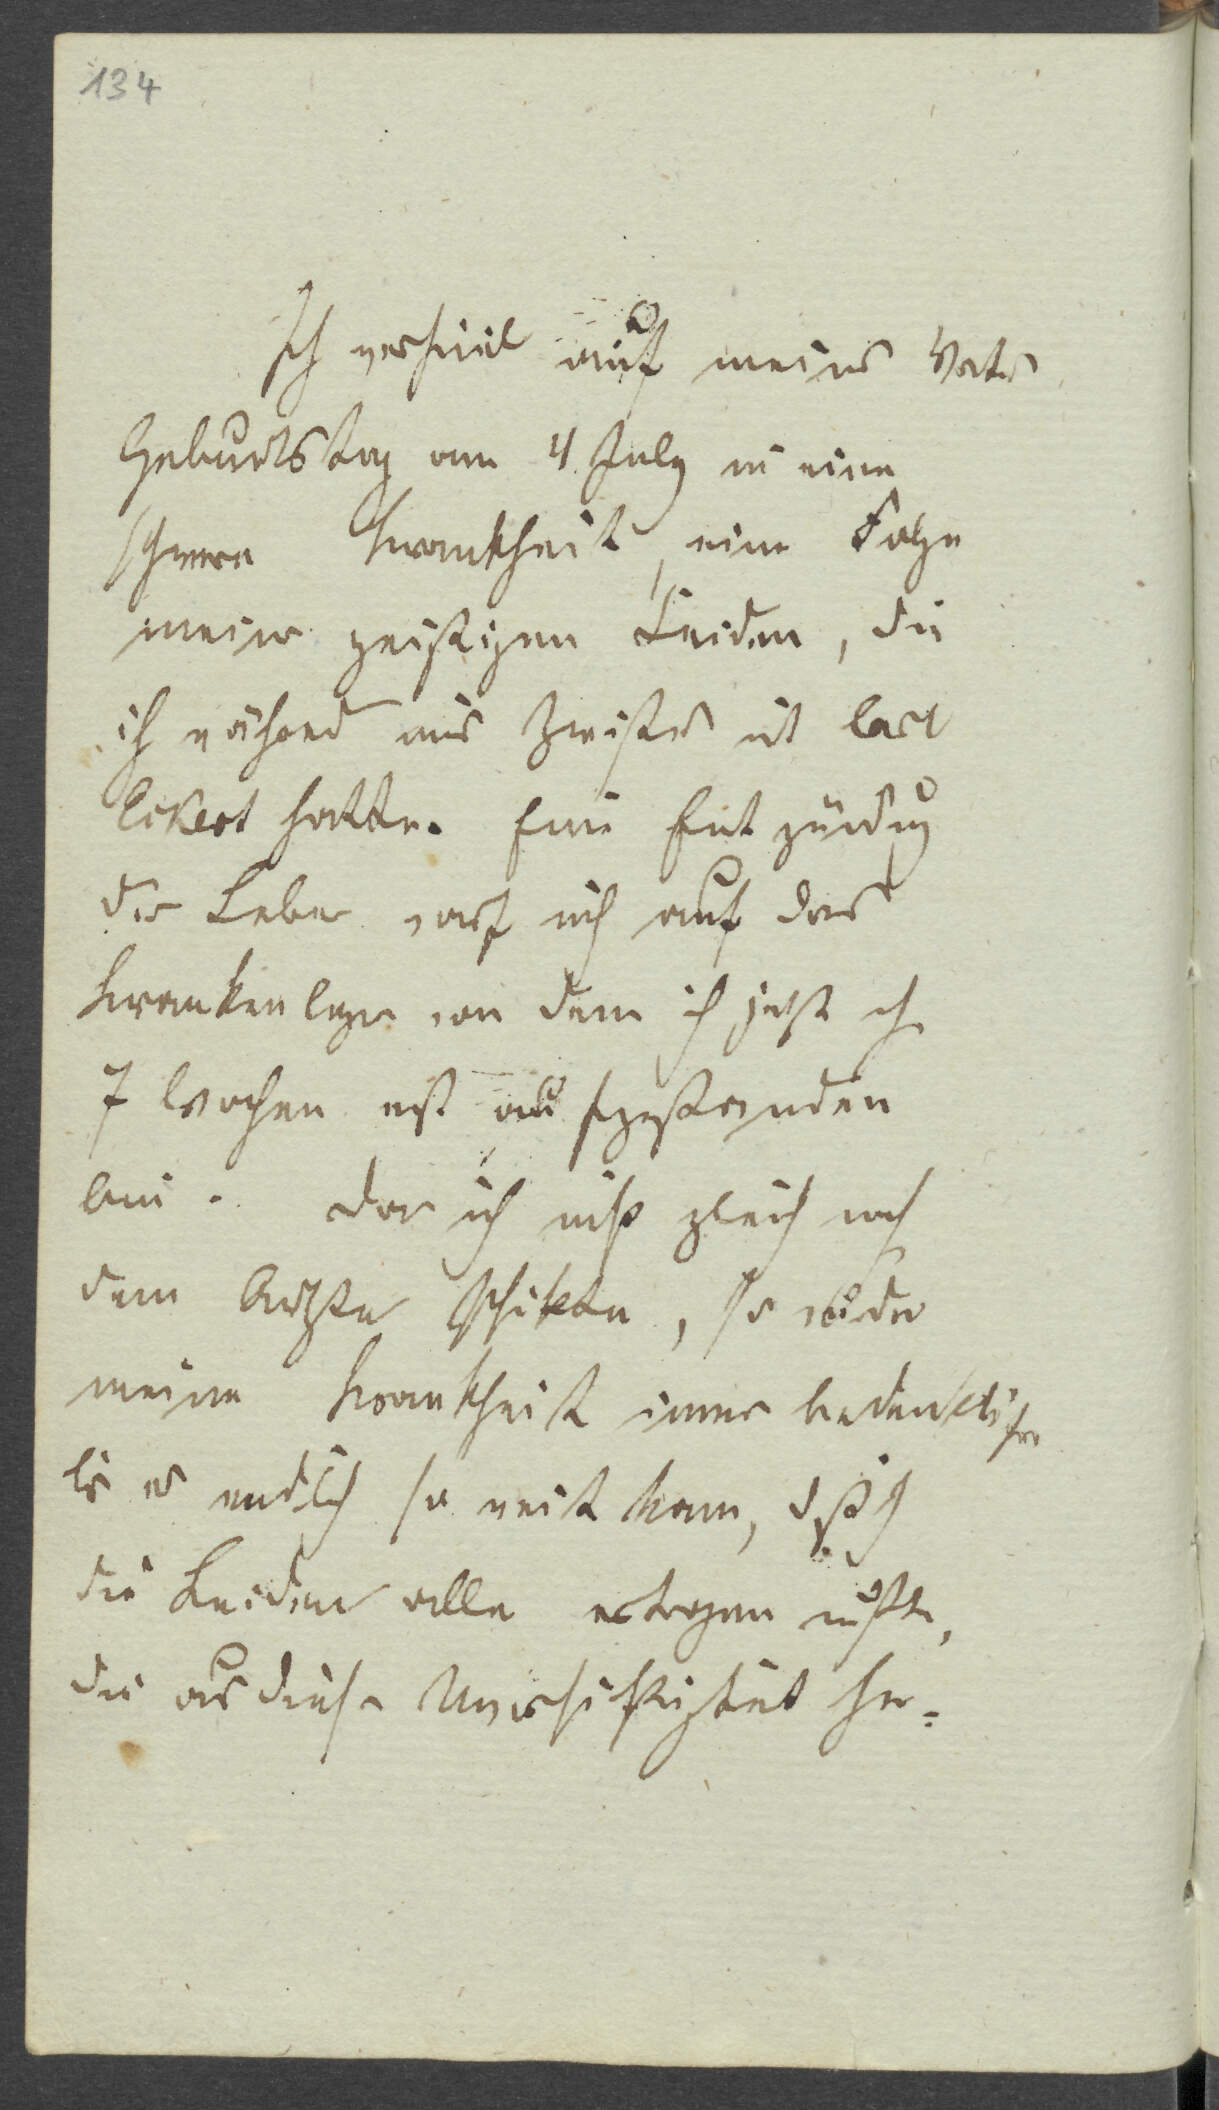 134
Ich verfiel auf meines Vaters
Geburtstag am 4 July in eine
schwere Krankheit, eine Folge
meiner geistigen Leiden, die
ich während des Zwistes mit Carl
Eckert hatte. Eine Entzündung
der Leber warf mich auf das
Krankenlager von dem ich jetzt nach
7 Wochen erst aufgestanden
bin. Da ich nicht gleich nach
dem Arzte schikte, so wurde
meine Krankheit immer bedenklicher
bis es endlich so weit kam, daß ich
die Leiden alle ertragen mußte,
die aus dieser Unvorsichtigkeit her=